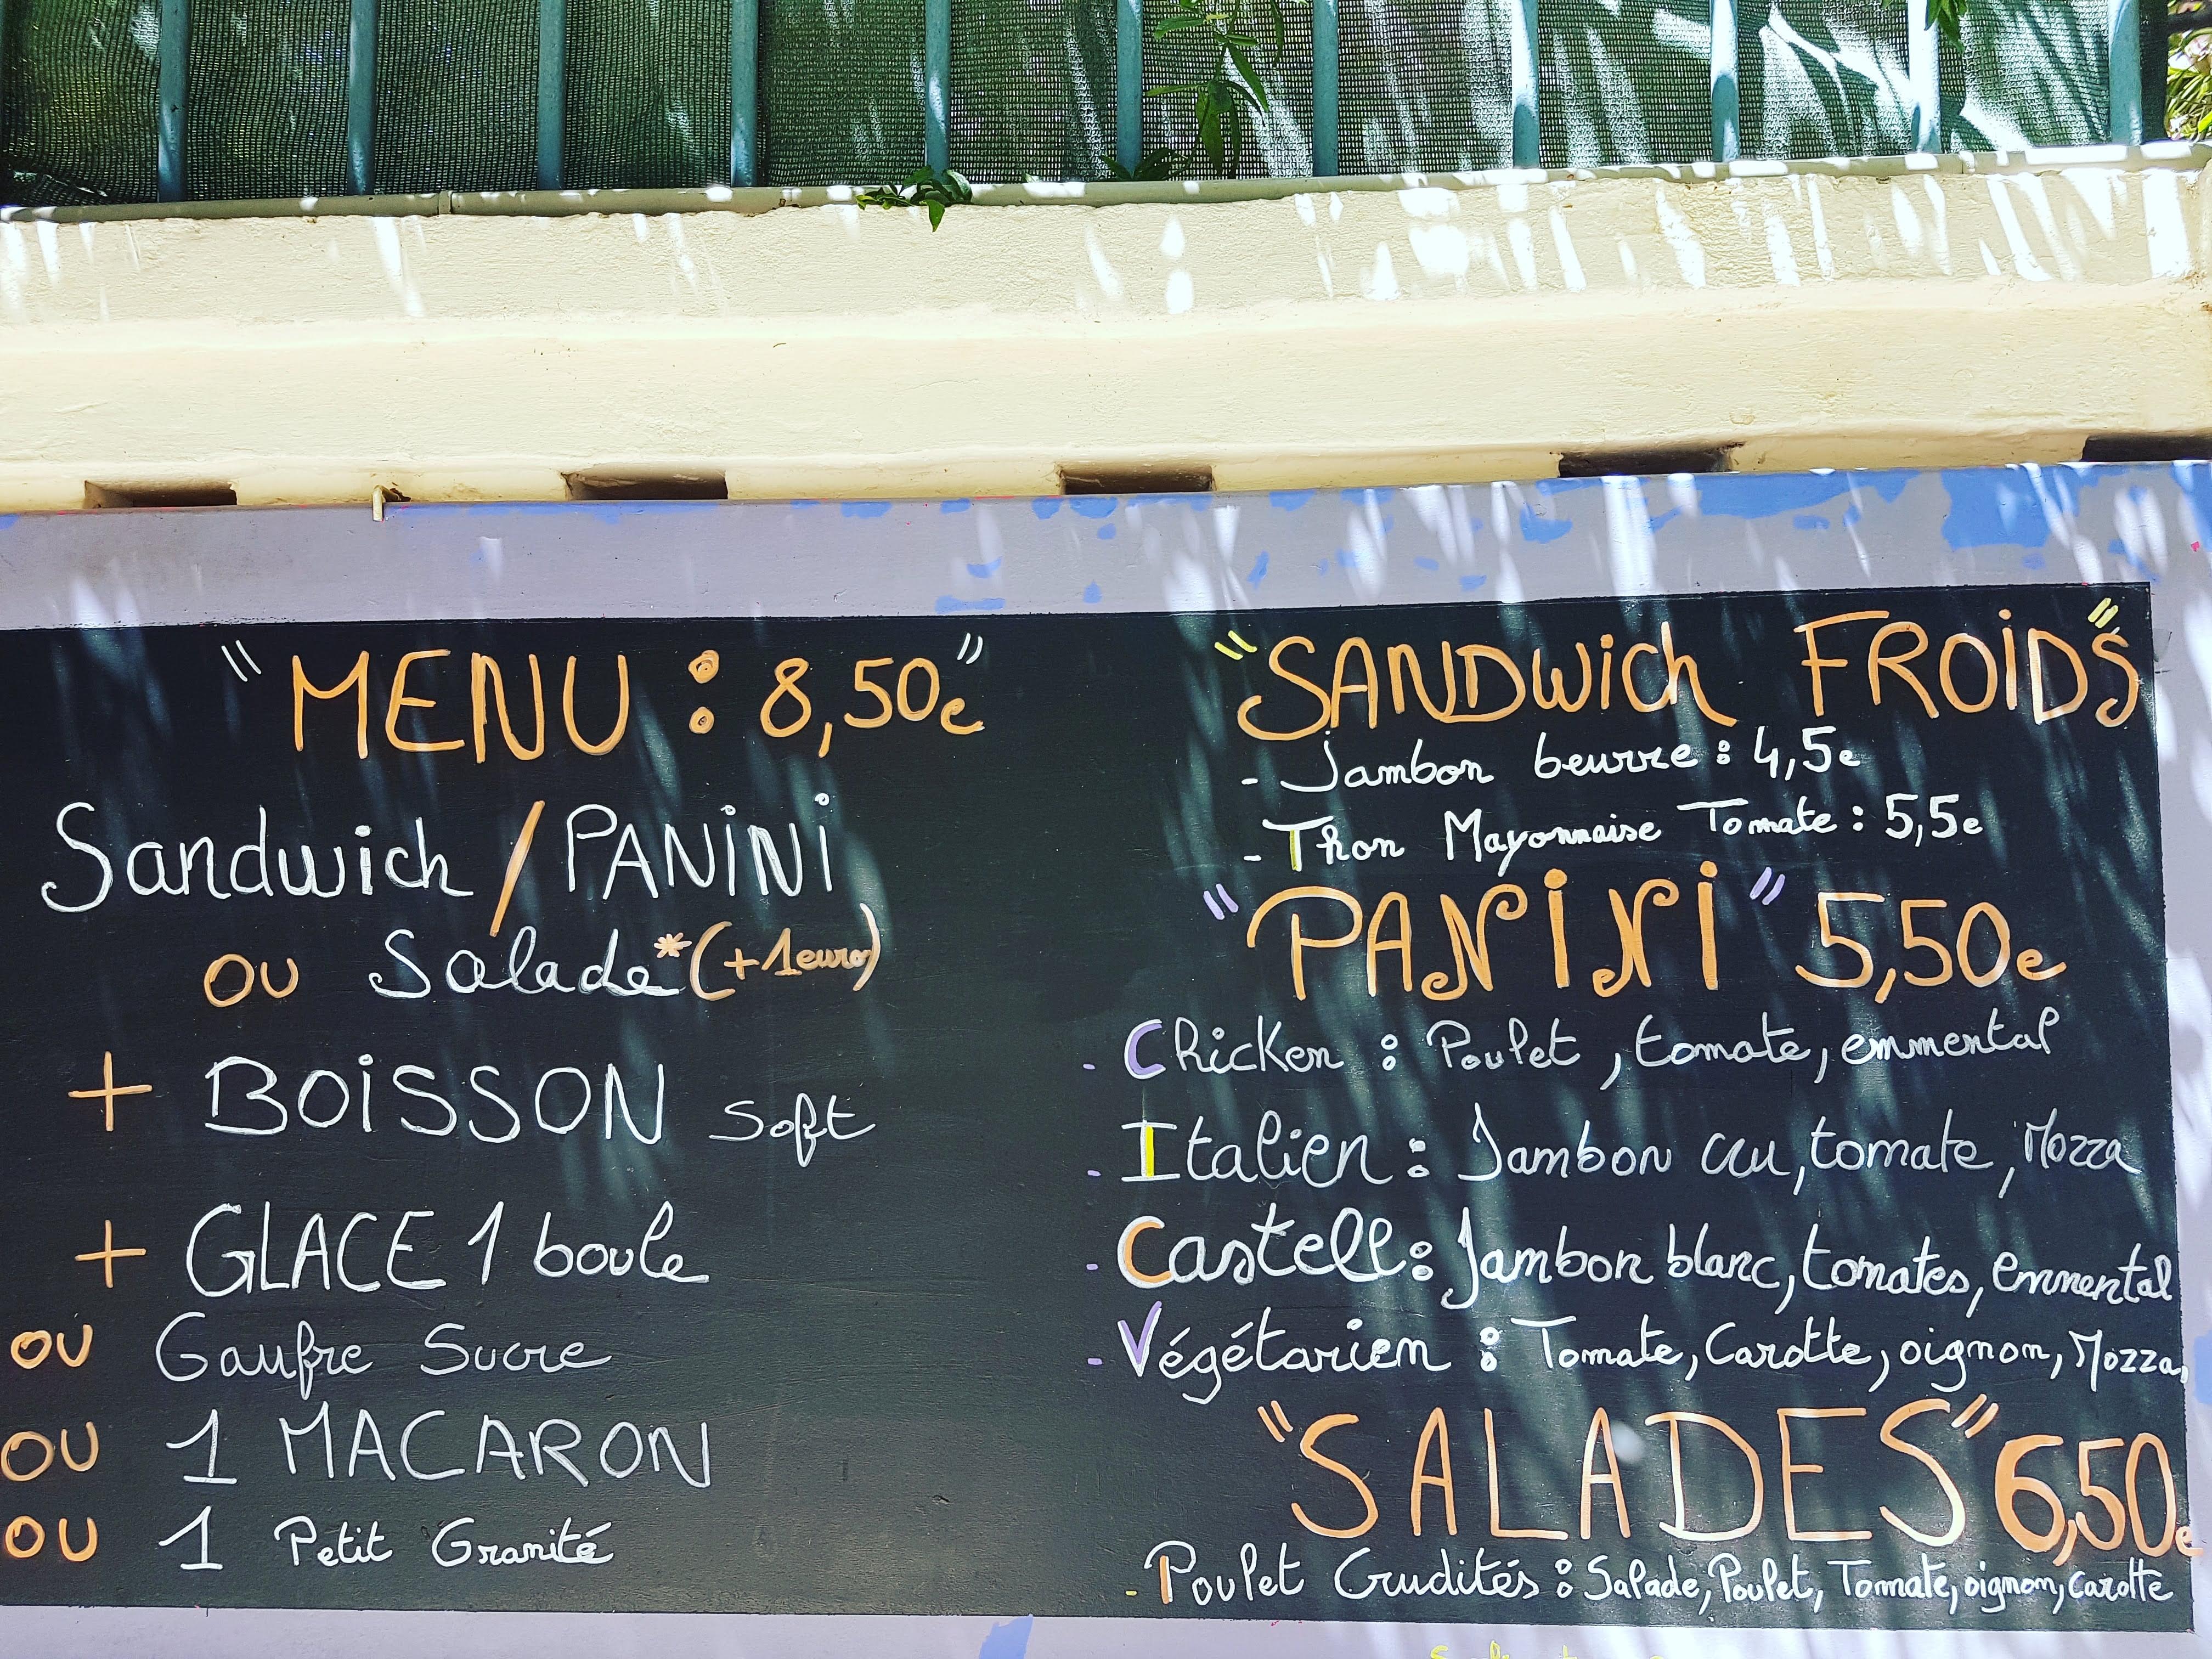 "MENU : 8,50e"
Sandwich / PANINI
ou Salade* (+1euro)
+ BOISSON soft
+ GLACE 1 boule
ou Gaufre Sucre
ou 1 MACARON
ou 1 Petit Granité
"SANDWich FROIDS"
- Jambon beurre : 4,5e
- Thon Mayonnaise Tomate : 5,5e
"PANINI" 5,50e
- Chicken : Poulet, tomate, emmental
- Italien : Jambon cru, tomate, Mozza
- Castell : Jambon blanc, tomates, emmental
- Végétarien : Tomate, Carotte, oignon, Mozza,
"SALADES" 6,50e
- Poulet Crudités : Salade, Poulet, Tomate, oignon, carotte